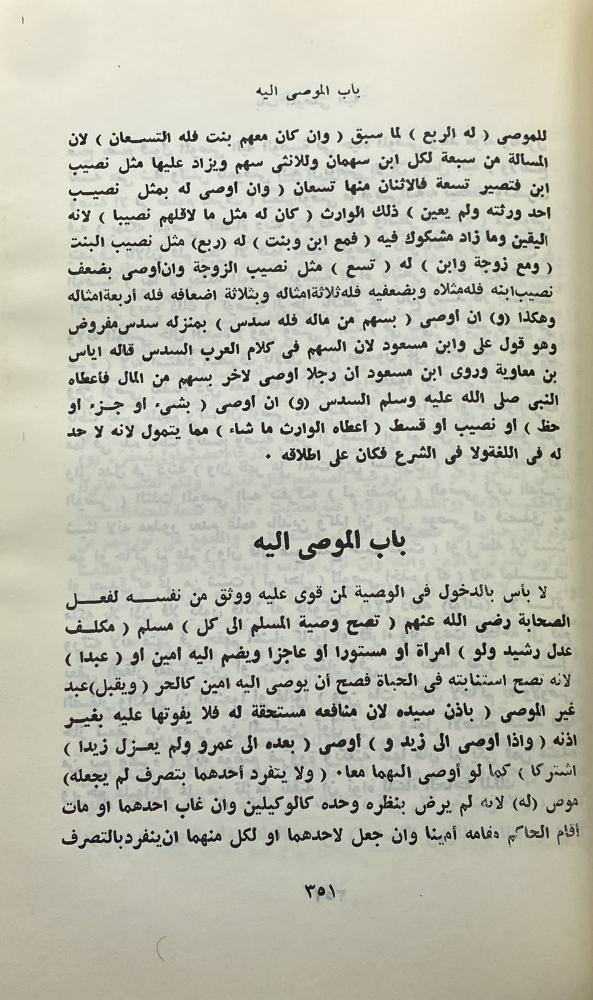 باب الموصى اليه
للموصى ( له الربع ) لما سبق ( وان كان معهم بنت فله التسـعان ) لان
المسالة من سبعة لكل ابن سهمان وللانثى سهم ويزاد عليها مثل نصيب
ابن فتصير تسعة فالاثنان منها تسعان ( وان اوصى له بمثل نصيـب
احد ورثته ولم يعين ) ذلك الوارث ( كان له مثل ما لاقلهم نصيبا ) لانه
اليقين وما زاد مشكوك فيه ( فمع ابن وبنت ) له (ربع) مثل نصيب البنت
( ومع زوجة وابن ) له ( تسع ) مثل نصيب الزوجة وان اوصى بضعف
نصيب ابنه فله مثلاه وبضعفيه فله ثلاثة امثاله وبثلاثة اضعافه فله أربعة امثاله
وهكذا (و) ان اوصى ( بسهم من ماله فله سدس ) بمنزله سدس مفروض
وهو قول على وابن مسعود لان السهم فى كلام العرب السدس قاله اياس
بن معاوية وروى ابن مسعود ان رجلا اوصى لاخر بسهم من المال فأعطاه
النبى صلى الله عليه وسلم السدس (و) ان اوصى ( بشىء او جـزء او
حظ ) او نصيب او قسط ( أعطاه الوارث ما شاء ) مما يتمول لانه لا حد
له فى اللغة ولا فى الشرع فكان على اطلاقه ٠
باب الموصى اليه
لا بأس بالدخول فى الوصية لمن قوى عليه ووثق من نفسـه لفعـل
الصحابة رضى الله عنهم ( تصح وصية المسلم الى كل ) مسلم ( مكلـف
عدل رشيد ولو ) امرأة أو مستورا او عاجزا ويضم اليه امين او ( عبدا )
لانه تصح استنابته فى الحياة فصح أن يوصى اليه امين كالحر ( ويقبل) عبد
غير الموصى ( باذن سيده لان منافعه مستحقة له فلا يفوتها عليه بغيـر
اذنه ( واذا اوصى الى زيد و ) أوصى ( بعده الى عمرو ولم يعـزل زيدا )
اشتركا ) كما لو أوصى اليهما معا٠ ( ولا يتفرد أحدهما بتصرف لم يجعله)
موص (له) لانه لم يرض بنظره وحده كالوكيلين وان غاب احدهما او مات
أقام الحاكم مقامه أمينا وان جعل لاحدهما او لكل منهما ان ينفرد بالتصرف
٣٥١